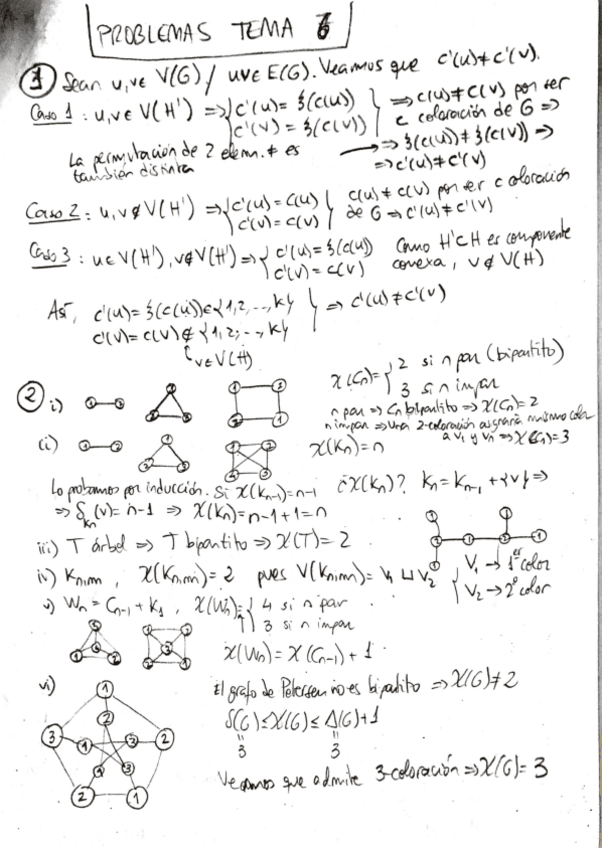 PROBLEMAS TEMA 6
1 Sean u,v∈ V(G) / uv∈ E(G). Veamos que c'(u)≠c'(v).
Caso 1: u,v∈ V(H') ⇒ { c'(u)=ξ(c(u)) c'(v)=ξ(c(v)) } ⇒ c(u)≠c(v) por ser
c coloración de G ⇒
⇒ ξ(c(u))≠ξ(c(v)) ⇒
⇒ c'(u)≠c'(v)
La permutación de 2 elem. ≠ es
también distinta
Caso 2: u,v∉V(H') ⇒ { c'(u)=c(u) c'(v)=c(v) } c(u)≠c(v) por ser c coloración
de G ⇒ c'(u)≠c'(v)
Caso 3: u∈V(H'), v∉V(H') ⇒ { c'(u)=ξ(c(u)) c'(v)=c(v) Como H'⊂H es componente
conexa, v∉V(H)
Así, c'(u)=ξ(c(u))∈{1,2,...,k}
c'(v)=c(v)∉{1,2,...,k} } ⇒ c'(u)≠c'(v)
v∈V(H)
2 i)
χ(Cn)= { 2 si n par (bipartito)
3 si n impar
n par ⇒ Cn bipartito ⇒ χ(Cn)=2
n impar ⇒ una 2-coloración asignaría mismo color
a v1 y vn ⇒ χ(Cn)=3
ii)
χ(Kn)=n
Lo probamos por inducción. Si χ(Kn-1)=n-1 ¿χ(Kn)? Kn=Kn-1+{v} ⇒
⇒ δKn(v)=n-1 ⇒ χ(Kn)=n-1+1=n
iii) T árbol ⇒ T bipartito ⇒ χ(T)=2
iv) Kn,m, χ(Kn,m)=2 pues V(Kn,m)=V1⊔V2 { V1 → 1er color
V2 → 2º color
v) Wn=Cn-1+K1, χ(Wn)= { 4 si n par
3 si n impar
χ(Wn)=χ(Cn-1)+1
vi)
El grafo de Petersen no es bipartito ⇒ χ(G)≠2
δ(G)≤χ(G)≤Δ(G)+1
3 3
Veamos que admite 3-coloración ⇒ χ(G)=3
1
2
3 1 3 2
1 3
2 1